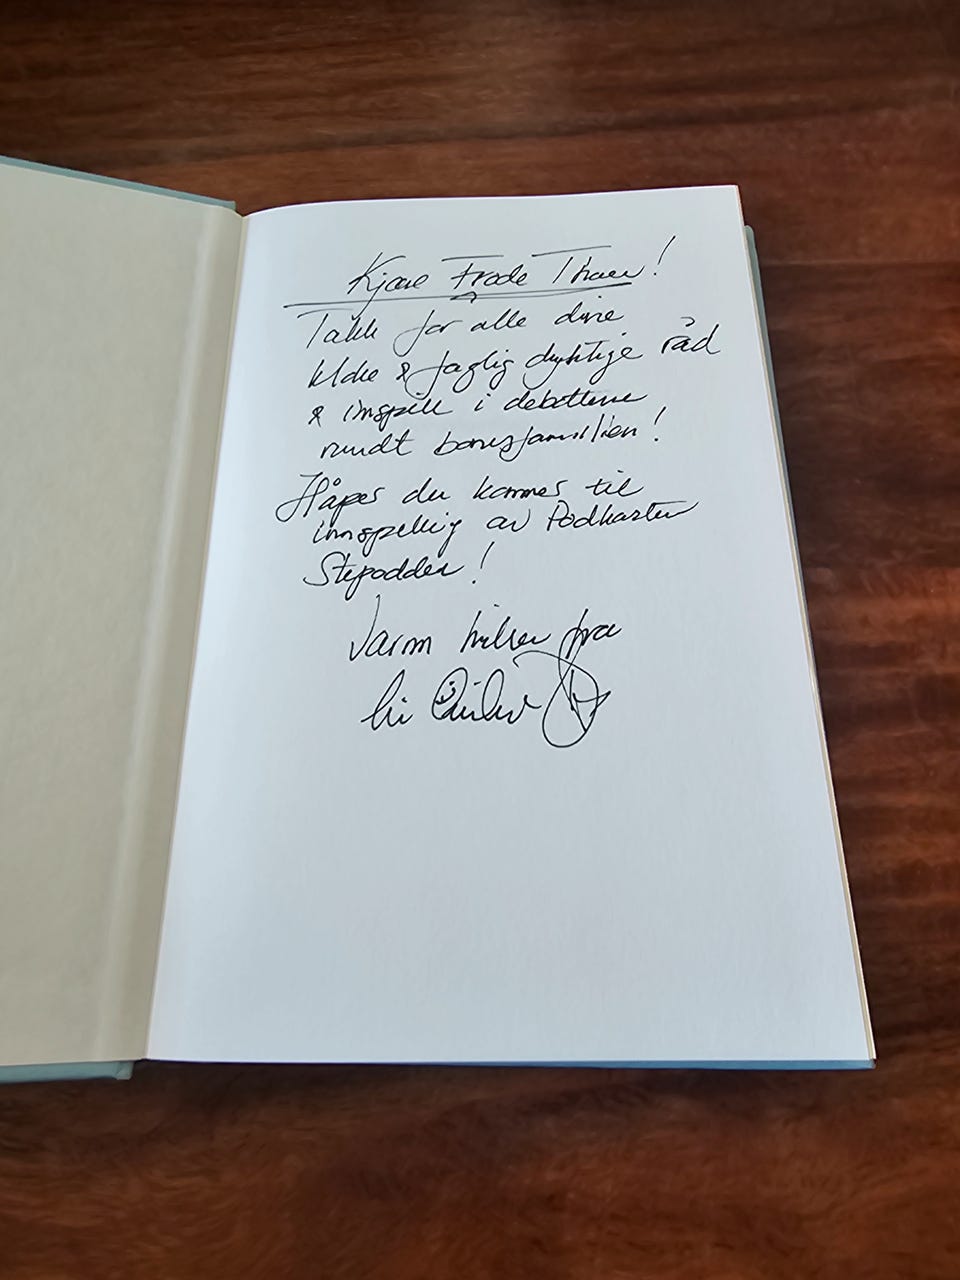 Kjære Frode Thuen!
Takk for alle dine
kloke & faglig dyktige råd
& innspill i debattene
rundt bonusfamilien!
Håper du kommer til
innspilling av Podkasten
Stepodden!
Varm hilsen fra